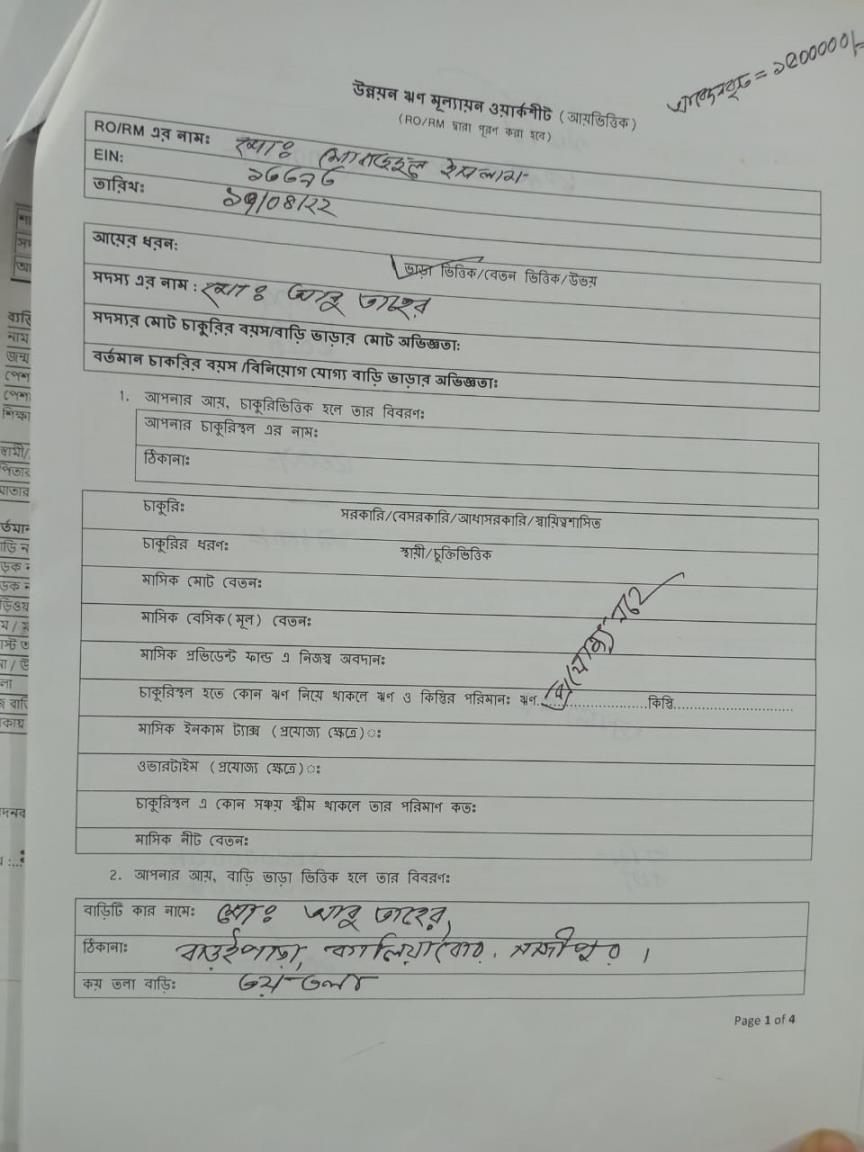 = ১৫০০০০০/=
উন্নয়ন ঋণ মূল্যায়ন ওয়ার্কশীট (আয়ভিত্তিক)
(RO/RM দ্বারা পূরণ করা হবে)
RO/RM এর নাম: মোঃ ইসলাম
EIN:
তারিখ: ১৭/০৪/২২
আয়ের ধরন: ভাড়া ভিত্তিক/বেতন ভিত্তিক/উভয়
সদস্য এর নাম : মোঃ আবু তাহের
সদস্যর মোট চাকুরির বয়স/বাড়ি ভাড়ার মোট অভিজ্ঞতা:
বর্তমান চাকরির বয়স /বিনিয়োগ যোগ্য বাড়ি ভাড়ার অভিজ্ঞতা:
1. আপনার আয়, চাকুরিভিত্তিক হলে তার বিবরণ:
আপনার চাকুরিস্থল এর নাম:
ঠিকানা:
চাকুরি: সরকারি/বেসরকারি/আধাসরকারি/স্বায়িত্বশাসিত
চাকুরির ধরণ: স্থায়ী/চুক্তিভিত্তিক
মাসিক মোট বেতন:
মাসিক বেসিক(মূল) বেতন:
মাসিক প্রভিডেন্ট ফান্ড এ নিজস্ব অবদান:
প্রযোজ্য নহে
চাকুরিস্থল হতে কোন ঋণ নিয়ে থাকলে ঋণ ও কিস্তির পরিমান: ঋণ..............................কিস্তি..............................
মাসিক ইনকাম ট্যাক্স (প্রযোজ্য ক্ষেত্রে)ঃ
ওভারটাইম (প্রযোজ্য ক্ষেত্রে)ঃ
চাকুরিস্থল এ কোন সঞ্চয় স্কীম থাকলে তার পরিমান কত:
মাসিক নীট বেতন:
2. আপনার আয়, বাড়ি ভাড়া ভিত্তিক হলে তার বিবরণ:
বাড়িটি কার নামে: মোঃ আবু তাহের,
ঠিকানা: বাড়ইপাড়া, কালিয়াকৈর, গাজীপুর।
কয় তলা বাড়ি: ৩য়-তলা
Page 1 of 4